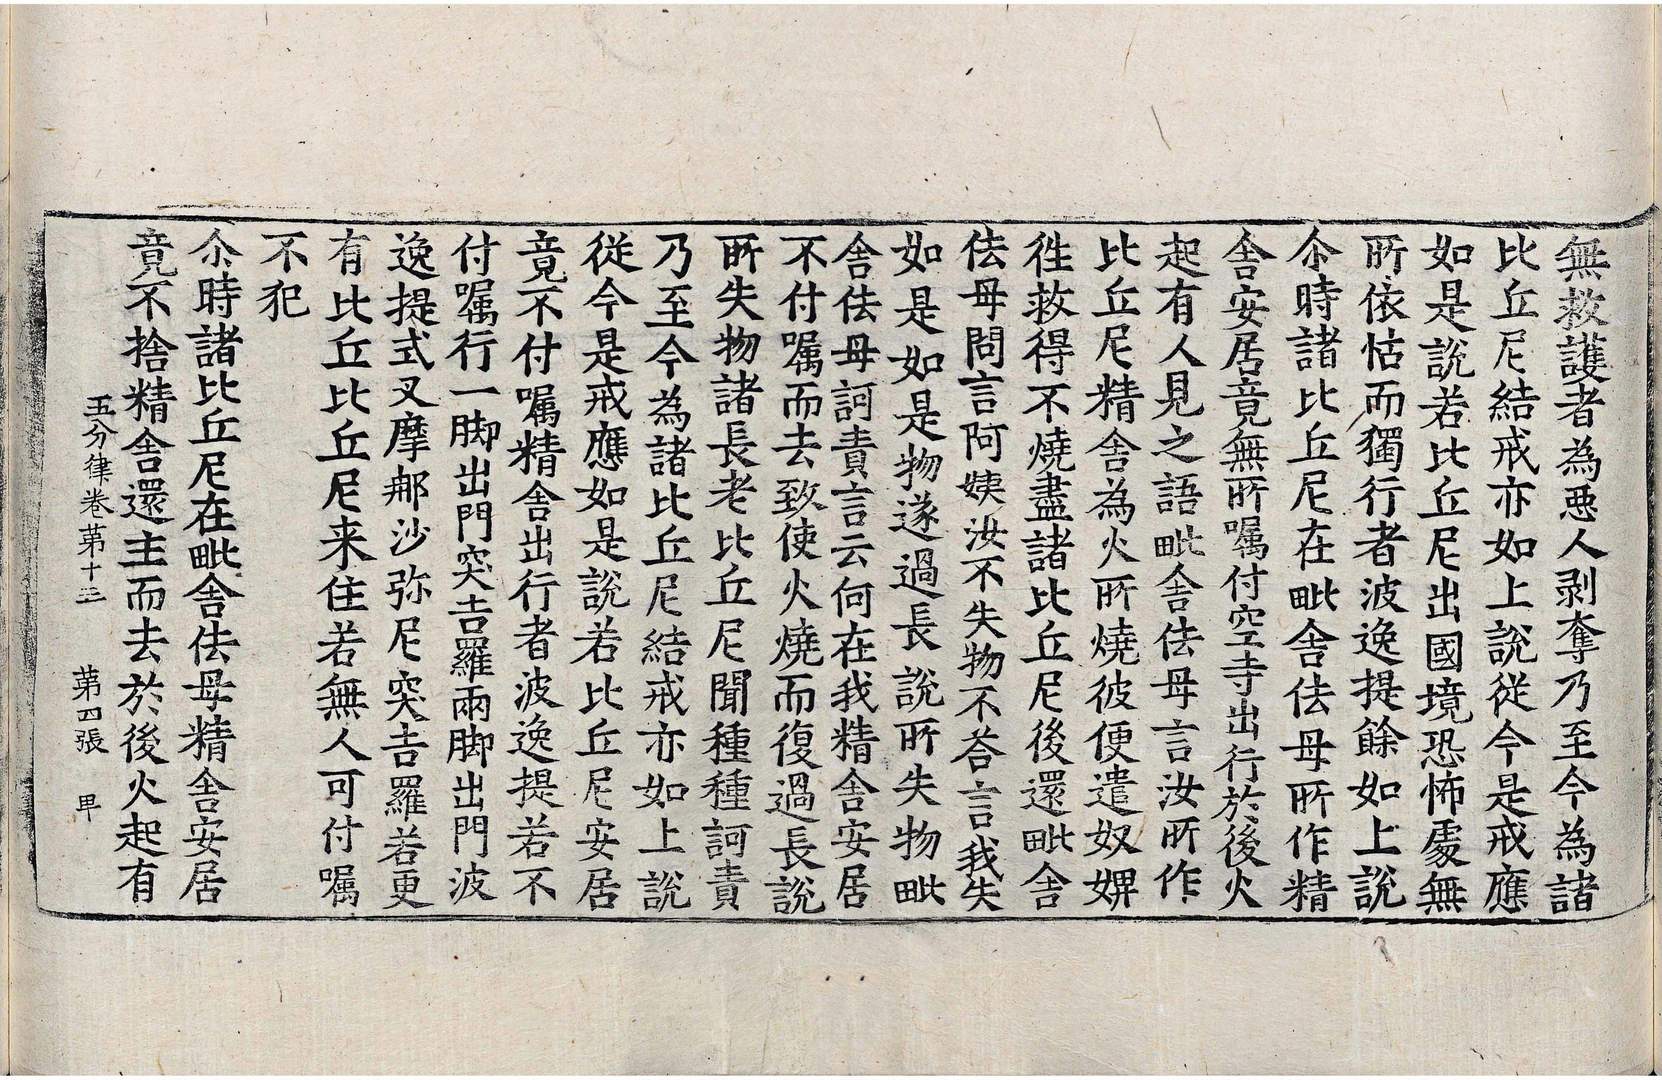 無救護者為惡人剥奪乃至今為諸
比丘尼結戒亦如上說從今是戒應
如是說若比丘尼出國境恐怖處無
所依怙而獨行者波逸提餘如上說
尒時諸比丘尼在毗舍佉母所作精
舍安居竟無所囑付空寺出行於後火
起有人見之語毗舍佉母言汝所作
比丘尼精舍為火所燒彼便遣奴婢
徃救得不燒盡諸比丘尼後還毗舍
佉母問言阿姨汝不失物不荅言我失
如是如是物遂過長說所失物毗
舍佉母訶責言云何在我精舍安居
不付囑而去致使火燒而復過長說
所失物諸長老比丘尼聞種種訶責
乃至今為諸比丘尼結戒亦如上說
從今是戒應如是說若比丘尼安居
竟不付囑精舍出行者波逸提若不
付囑行一脚出門突吉羅兩脚出門波
逸提式叉摩那沙弥尼突吉羅若更
有比丘比丘尼来住若無人可付囑
不犯
尒時諸比丘尼在毗舍佉母精舍安居
竟不捨精舍還主而去於後火起有
五分律卷第十三 第四張 甲